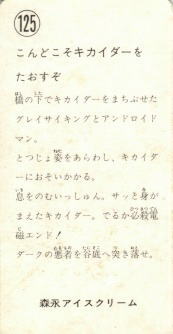 125
こんどこそキカイダーを
たおすぞ
橋の下でキカイダーをまちぶせた
グレイサイキングとアンドロイド
マン。
とつじょ姿をあらわし、キカイダ
ーにおそいかかる。
息をのむいっしゅん。サッと身が
まえたキカイダー。でるか必殺電
磁エンド！
ダークの悪者を谷底へ突き落せ。
森永アイスクリーム